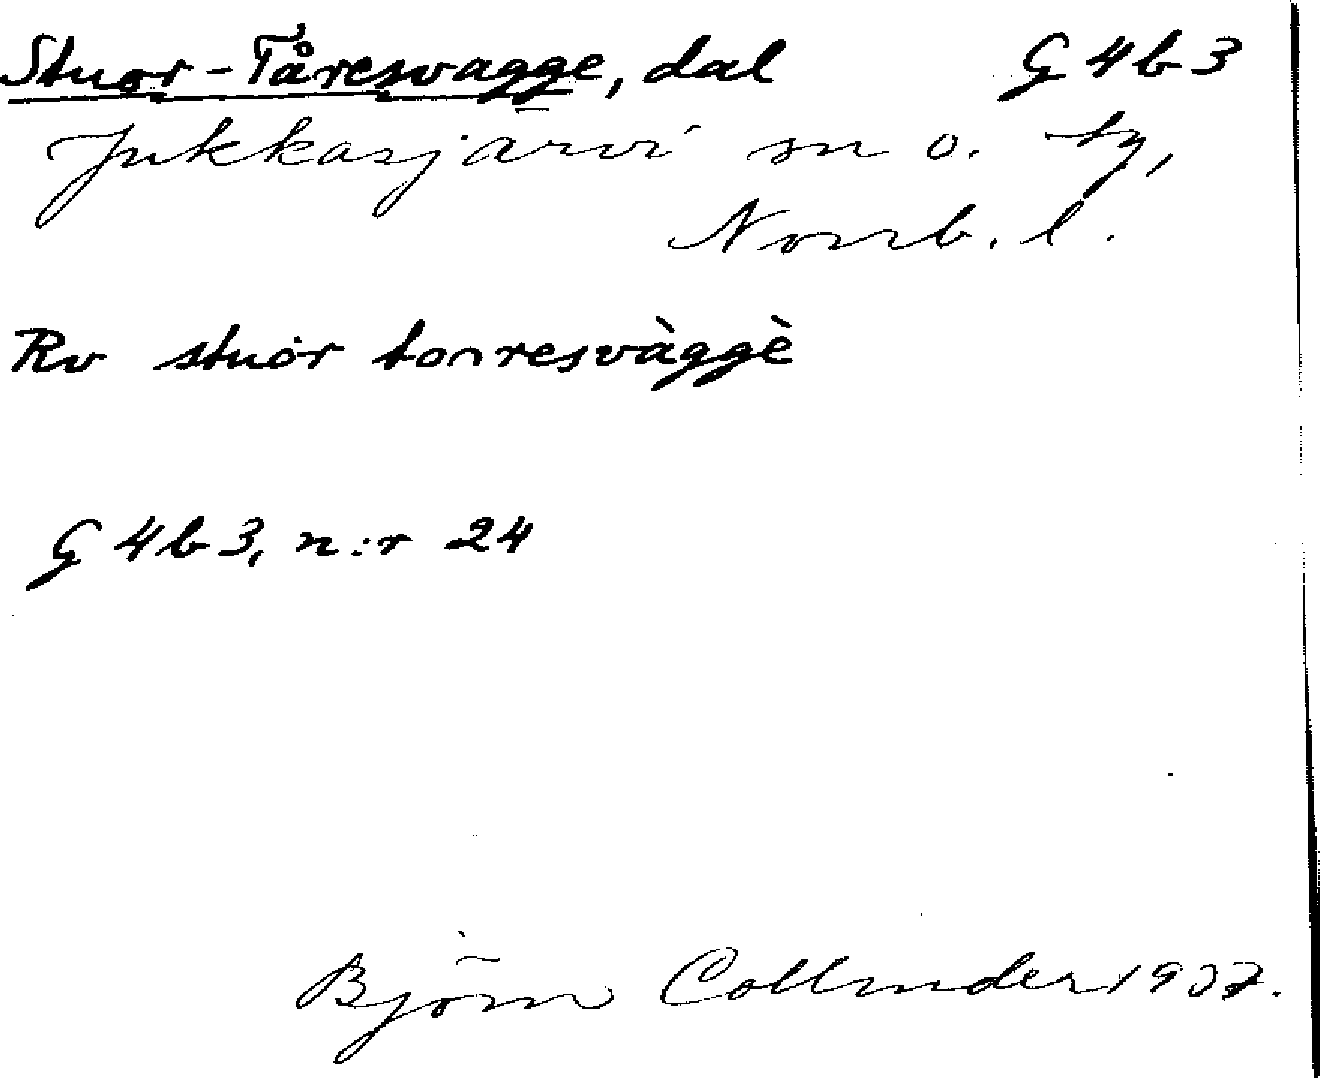 Stuor-Tåresvagge, dal G 4 b 3
Jukkasjärvi sn o. tg,
Norrb. l.
Rv stuor tonresvàggè
G 4 b 3, n:r 24
Björn Collinder 1937.